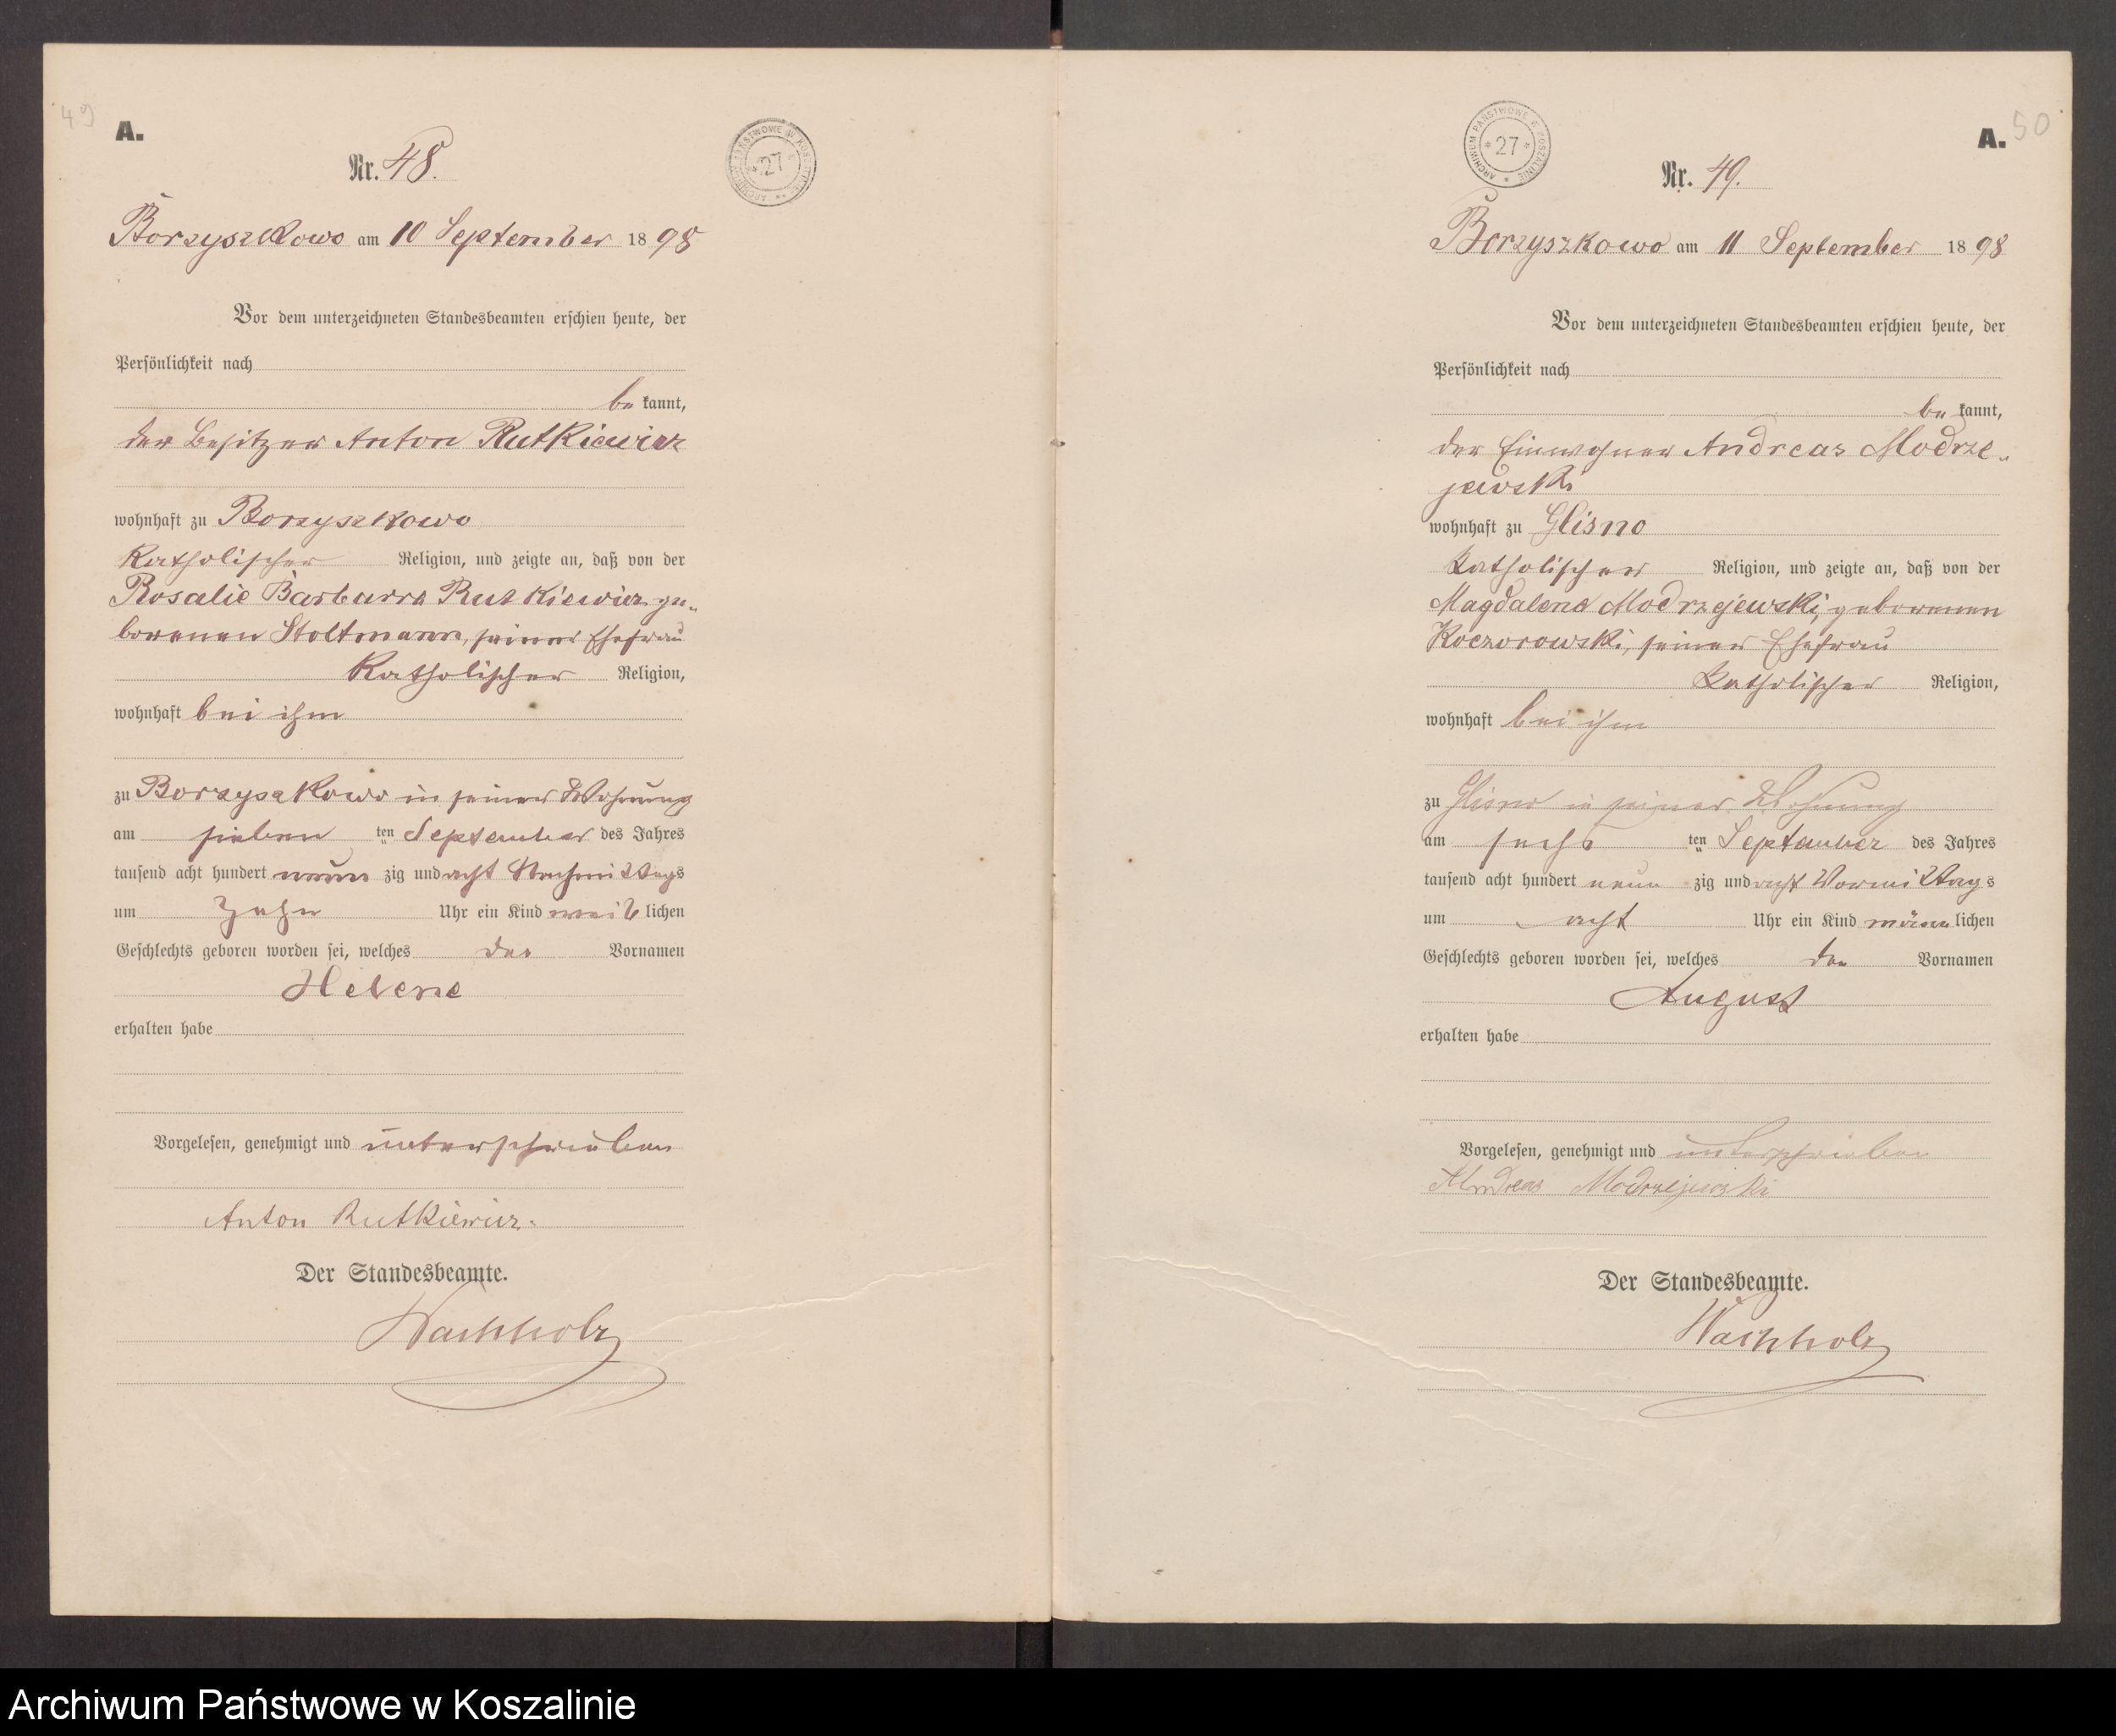 49
A.
Nr. 48.
ARCHIWUM PAŃSTWOWE W KOSZALINIE * 27 *
Borzyszkowo am 10 September 1898
Vor dem unterzeichneten Standesbeamten erschien heute, der
Persönlichkeit nach
be kannt,
der Besitzer Anton Rutkiewicz
wohnhaft zu Borzyszkowo
katholischer Religion, und zeigte an, daß von der
Rosalie Barbarra Rutkiewicz ge„
borenen Stoltmann, seiner Ehefrau
katholischer Religion,
wohnhaft bei ihm
zu Borzyszkowo in seiner Wohnung
am sieben ten September des Jahres
tausend acht hundert neun zig und acht Nachmittags
um zehn Uhr ein Kind weib lichen
Geschlechts geboren worden sei, welches den Vornamen
Helene
erhalten habe
Vorgelesen, genehmigt und unterschrieben
Anton Rutkiewicz.
Der Standesbeamte.
Wachholz
ARCHIWUM PAŃSTWOWE W KOSZALINIE * 27 *
A.
50
Nr. 49.
Borzyszkowo am 11 September 1898
Vor dem unterzeichneten Standesbeamten erschien heute, der
Persönlichkeit nach
be kannt,
der Einwohner Andreas Modrze„
jewski
wohnhaft zu Glisno
katholischer Religion, und zeigte an, daß von der
Magdalena Modrzejewski, geborenen
Koczorowski, seiner Ehefrau
katholischer Religion,
wohnhaft bei ihm
zu Glisno in seiner Wohnung
am sechs ten September des Jahres
tausend acht hundert neun zig und acht Vormittags
um acht Uhr ein Kind männ lichen
Geschlechts geboren worden sei, welches den Vornamen
August
erhalten habe
Vorgelesen, genehmigt und unterschrieben
Andreas Modrzejewski
Der Standesbeamte.
Wachholz
Archiwum Państwowe w Koszalinie